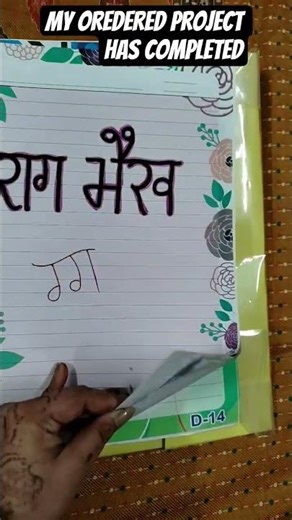 MY OREDERED PROJECT
HAS COMPLETED
राग भैरव
D-14